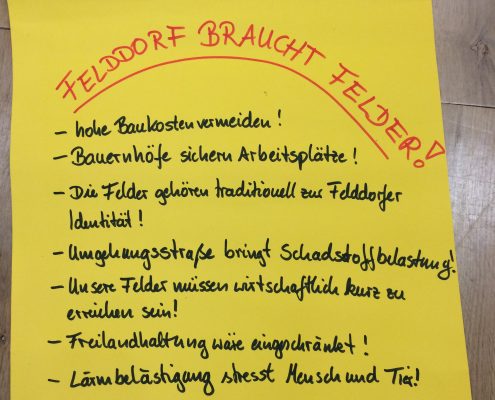 FELDDORF BRAUCHT FELDER!
- hohe Baukosten vermeiden!
- Bauernhöfe sichern Arbeitsplätze!
- Die Felder gehören traditionell zur Felddorfer
Identität!
- Umgehungsstraße bringt Schadstoffbelastung!
- Unsere Felder müssen wirtschaftlich kurz zu
erreichen sein!
- Freilandhaltung wäre eingeschränkt!
- Lärmbelästigung stresst Mensch und Tier!